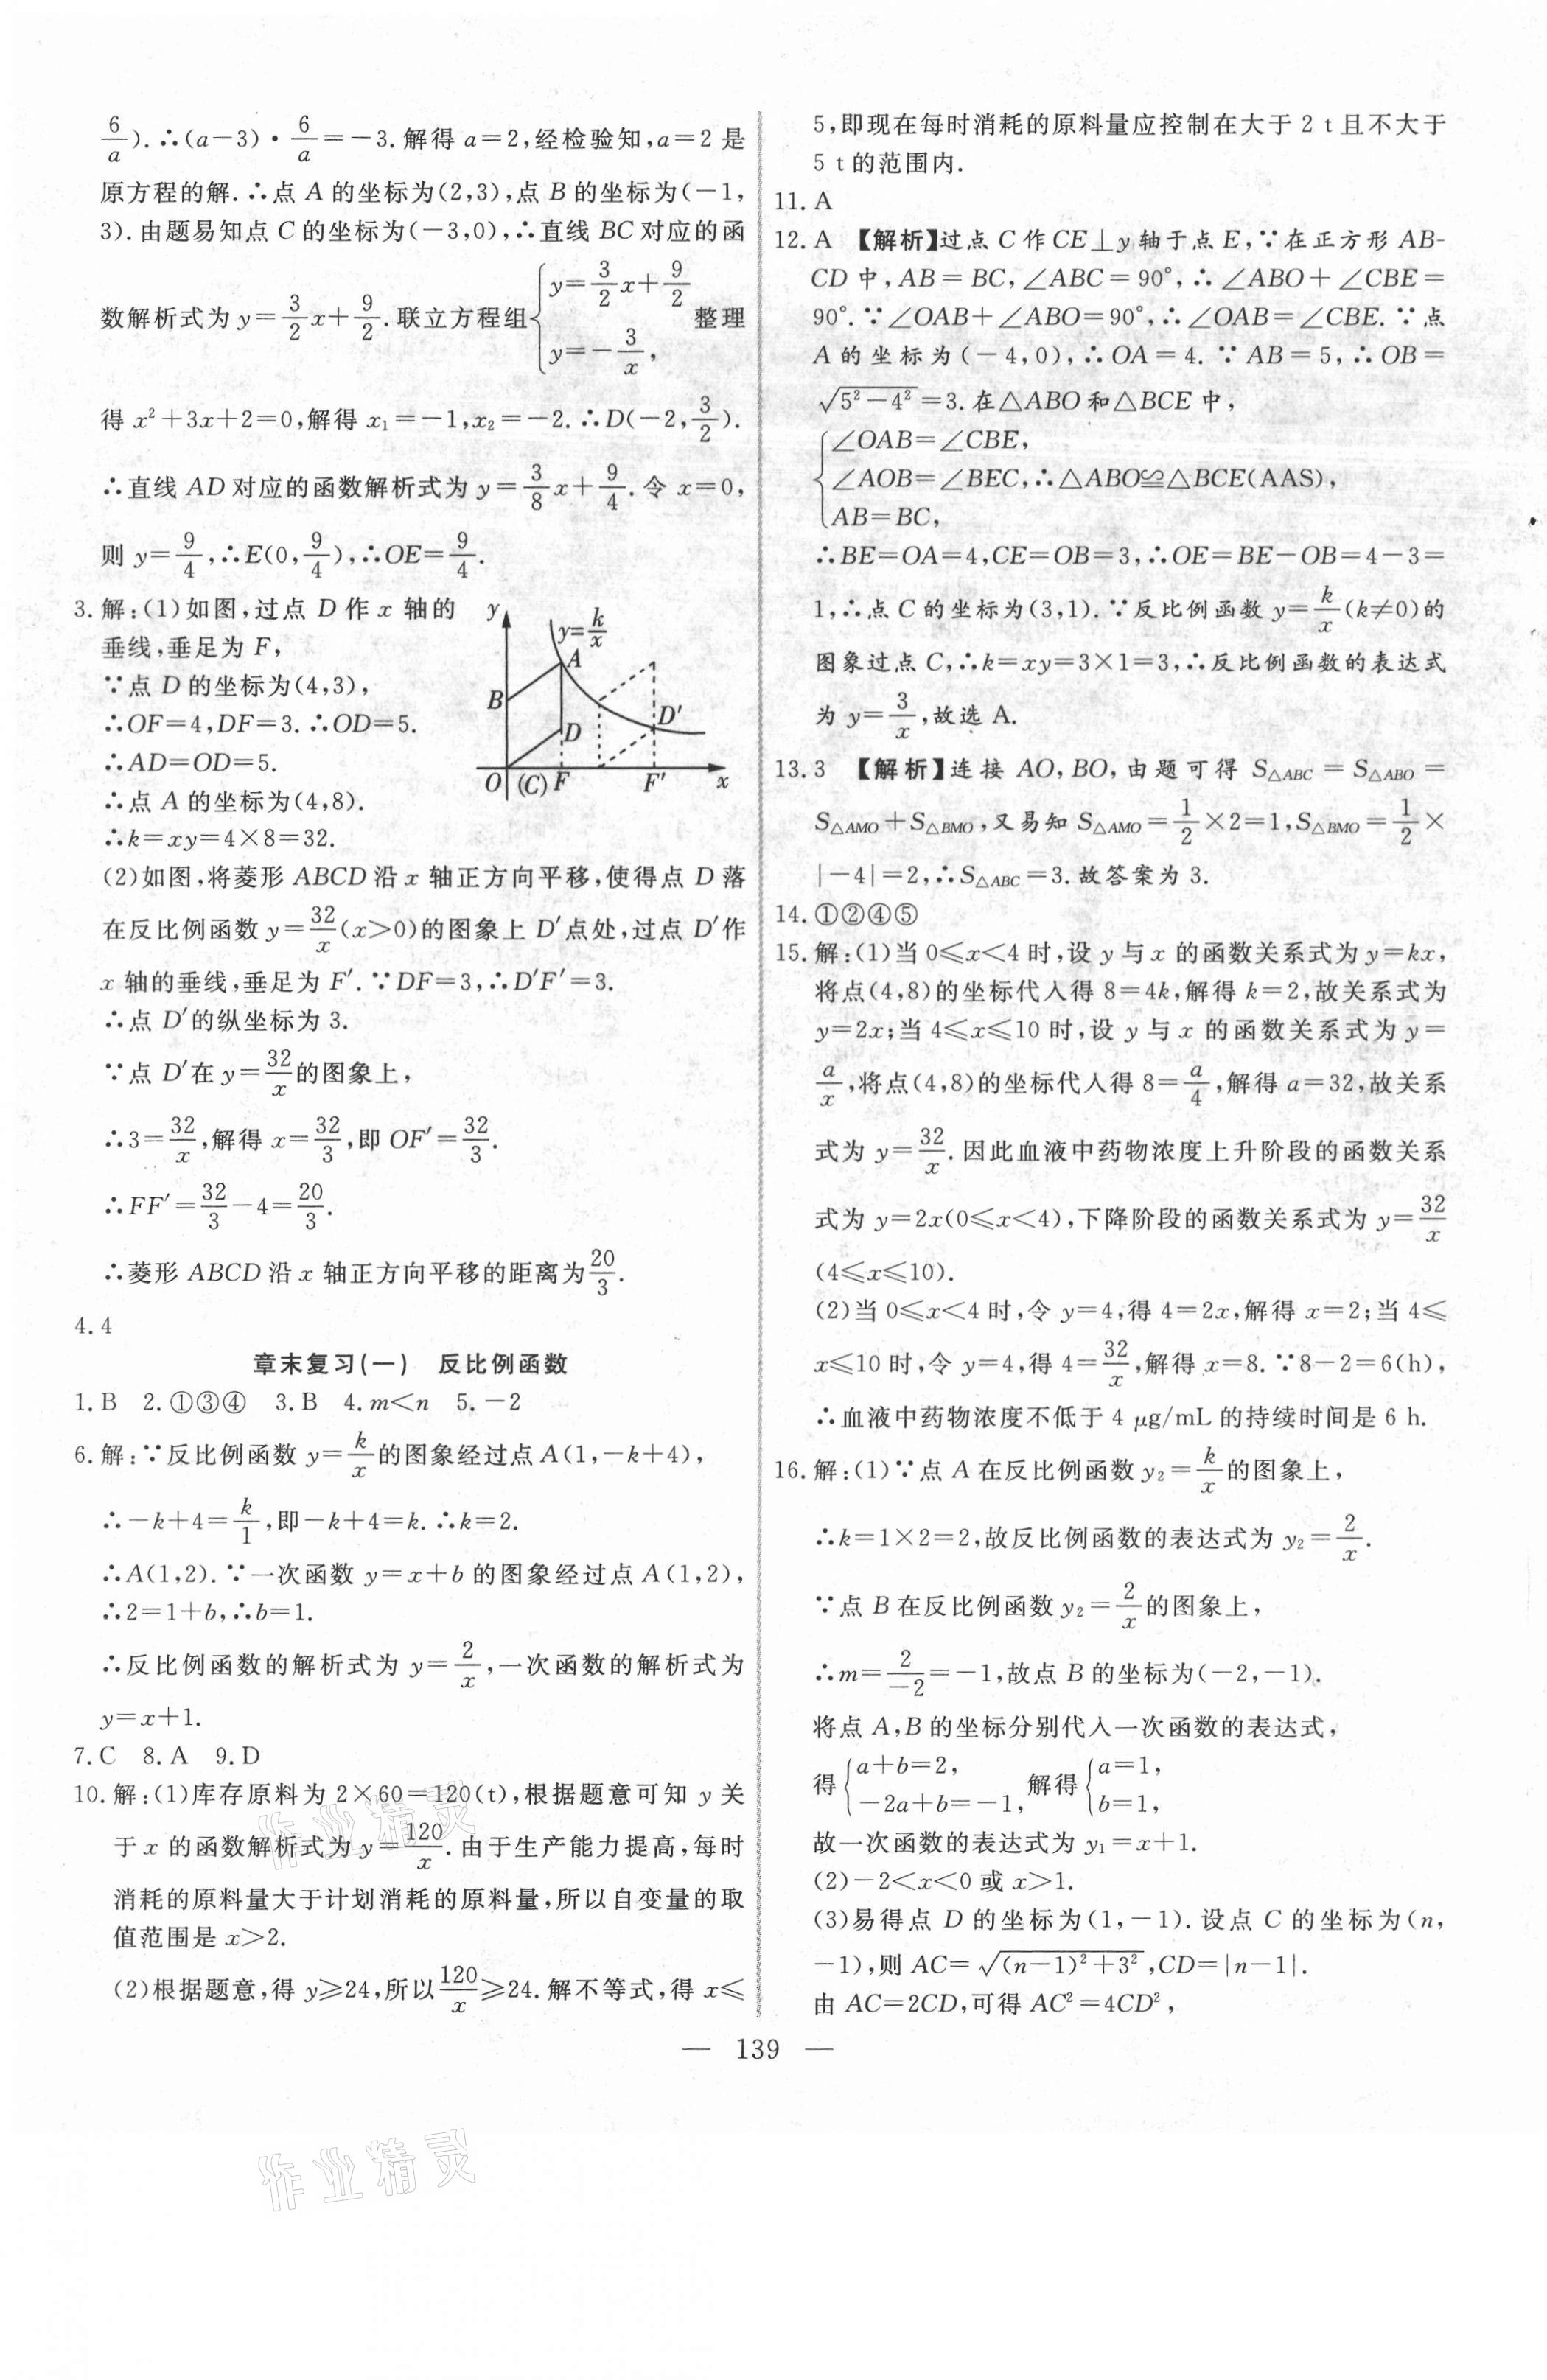 6/a). ∴(a－3)·6/a＝－3. 解得 a＝2,经检验知,a＝2 是
原方程的解. ∴点 A 的坐标为(2,3),点 B 的坐标为(－1,
3). 由题易知点 C 的坐标为(－3,0),∴直线 BC 对应的函
数解析式为 y＝3/2x＋9/2. 联立方程组{y＝3/2x＋9/2 y＝－3/x, 整理
得 x²＋3x＋2＝0,解得 x₁＝－1,x₂＝－2. ∴D(－2,3/2).
∴直线 AD 对应的函数解析式为 y＝3/8x＋9/4. 令 x＝0,
则 y＝9/4,∴E(0,9/4),∴OE＝9/4.
3. 解:(1)如图,过点 D 作 x 轴的
垂线,垂足为 F,
∵点 D 的坐标为(4,3),
∴OF＝4,DF＝3. ∴OD＝5.
∴AD＝OD＝5.
∴点 A 的坐标为(4,8).
∴k＝xy＝4×8＝32.
y
y＝k/x
A
B
D
D′
O (C) F F′ x
(2)如图,将菱形 ABCD 沿 x 轴正方向平移,使得点 D 落
在反比例函数 y＝32/x(x＞0)的图象上 D′点处,过点 D′作
x 轴的垂线,垂足为 F′. ∵DF＝3,∴D′F′＝3.
∴点 D′的纵坐标为 3.
∵点 D′在 y＝32/x的图象上,
∴3＝32/x,解得 x＝32/3,即 OF′＝32/3.
∴FF′＝32/3－4＝20/3.
∴菱形 ABCD 沿 x 轴正方向平移的距离为20/3.
4. 4
章末复习(一) 反比例函数
1. B 2. ①③④ 3. B 4. m＜n 5. －2
6. 解:∵反比例函数 y＝k/x的图象经过点 A(1,－k＋4),
∴－k＋4＝k/1,即－k＋4＝k. ∴k＝2.
∴A(1,2). ∵一次函数 y＝x＋b 的图象经过点 A(1,2),
∴2＝1＋b,∴b＝1.
∴反比例函数的解析式为 y＝2/x,一次函数的解析式为
y＝x＋1.
7. C 8. A 9. D
10. 解:(1)库存原料为 2×60＝120(t),根据题意可知 y 关
于 x 的函数解析式为 y＝120/x. 由于生产能力提高,每时
消耗的原料量大于计划消耗的原料量,所以自变量的取
值范围是 x＞2.
(2)根据题意,得 y≥24,所以120/x≥24. 解不等式,得 x≤
5,即现在每时消耗的原料量应控制在大于 2 t 且不大于
5 t 的范围内.
11. A
12. A 【解析】过点 C 作 CE⊥y 轴于点 E,∵在正方形 AB-
CD 中,AB＝BC,∠ABC＝90°,∴∠ABO＋∠CBE＝
90°. ∵∠OAB＋∠ABO＝90°,∴∠OAB＝∠CBE. ∵点
A 的坐标为(－4,0),∴OA＝4. ∵AB＝5,∴OB＝
√(5²－4²)＝3. 在△ABO 和△BCE 中,
{∠OAB＝∠CBE,
∠AOB＝∠BEC,∴△ABO≌△BCE(AAS),
AB＝BC,
∴BE＝OA＝4,CE＝OB＝3,∴OE＝BE－OB＝4－3＝
1,∴点 C 的坐标为(3,1). ∵反比例函数 y＝k/x(k≠0)的
图象过点 C,∴k＝xy＝3×1＝3,∴反比例函数的表达式
为 y＝3/x,故选 A.
13. 3 【解析】连接 AO,BO,由题可得 S△ABC＝S△ABO＝
S△AMO＋S△BMO,又易知 S△AMO＝1/2×2＝1,S△BMO＝1/2×
|－4|＝2,∴S△ABC＝3. 故答案为 3.
14. ①②④⑤
15. 解:(1)当 0≤x＜4 时,设 y 与 x 的函数关系式为 y＝kx,
将点(4,8)的坐标代入得 8＝4k,解得 k＝2,故关系式为
y＝2x;当 4≤x≤10 时,设 y 与 x 的函数关系式为 y＝
a/x,将点(4,8)的坐标代入得 8＝a/4,解得 a＝32,故关系
式为 y＝32/x. 因此血液中药物浓度上升阶段的函数关系
式为 y＝2x(0≤x＜4),下降阶段的函数关系式为 y＝32/x
(4≤x≤10).
(2)当 0≤x＜4 时,令 y＝4,得 4＝2x,解得 x＝2;当 4≤
x≤10 时,令 y＝4,得 4＝32/x,解得 x＝8. ∵8－2＝6(h),
∴血液中药物浓度不低于 4 μg/mL 的持续时间是 6 h.
16. 解:(1)∵点 A 在反比例函数 y₂＝k/x的图象上,
∴k＝1×2＝2,故反比例函数的表达式为 y₂＝2/x.
∵点 B 在反比例函数 y₂＝2/x的图象上,
∴m＝2/－2＝－1,故点 B 的坐标为(－2,－1).
将点 A,B 的坐标分别代入一次函数的表达式,
得{a＋b＝2, －2a＋b＝－1, 解得{a＝1, b＝1,
故一次函数的表达式为 y₁＝x＋1.
(2)－2＜x＜0 或 x＞1.
(3)易得点 D 的坐标为(1,－1). 设点 C 的坐标为(n,
－1),则 AC＝√((n－1)²＋3²),CD＝|n－1|.
由 AC＝2CD,可得 AC²＝4CD²,
— 139 —
作业精灵
作业精灵